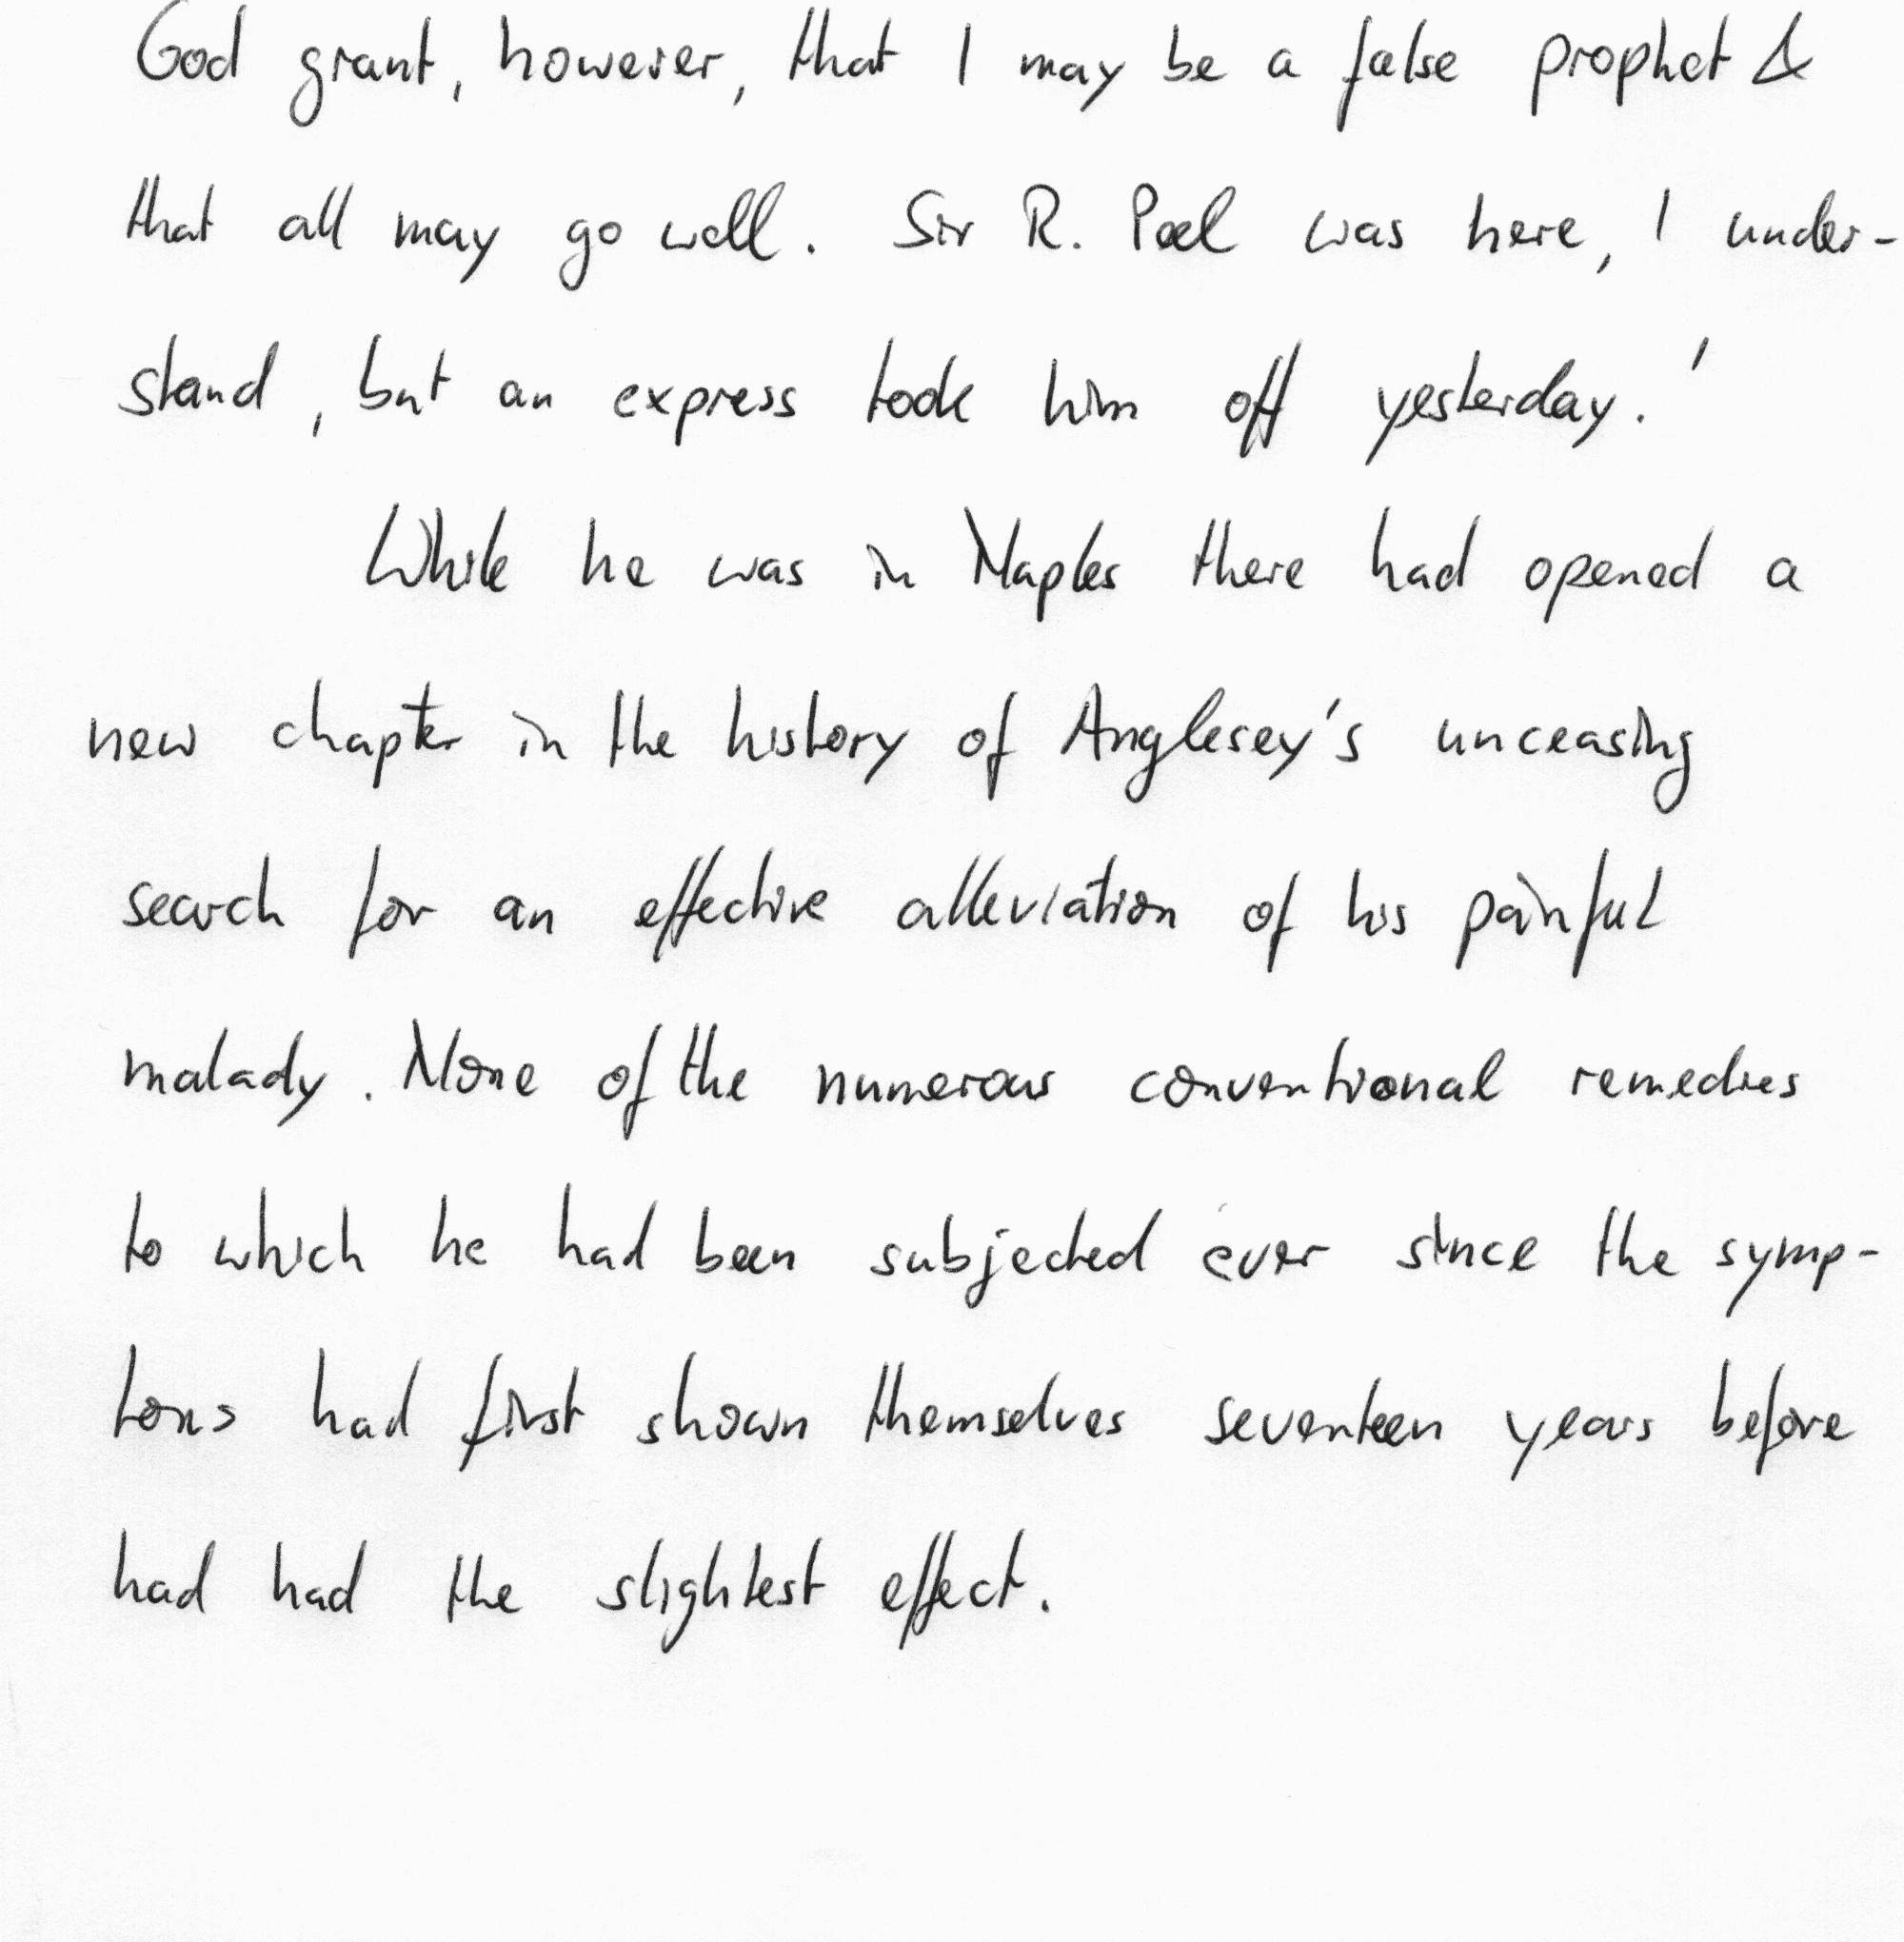 God grant, however, that I may be a false prophet &
that all may go well. Sir R. Peel was here, I under-
stand, but an express took him off yesterday.'
While he was in Naples there had opened a
new chapter in the history of Anglesey's unceasing
search for an effective alleviation of his painful
malady. None of the numerous conventional remedies
to which he had been subjected ever since the symp-
toms had first shown themselves seventeen years before
had had the slightest effect.